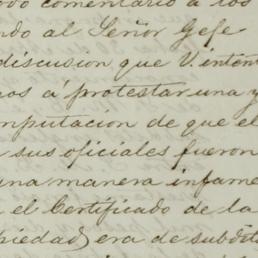 odo comentario a los
ndo al Señor Gefe
discusion que V. intent
ros á protestar una y
mputacion de que el
sus oficiales fueron
una manera infame
el Certificado de la
piedad era de